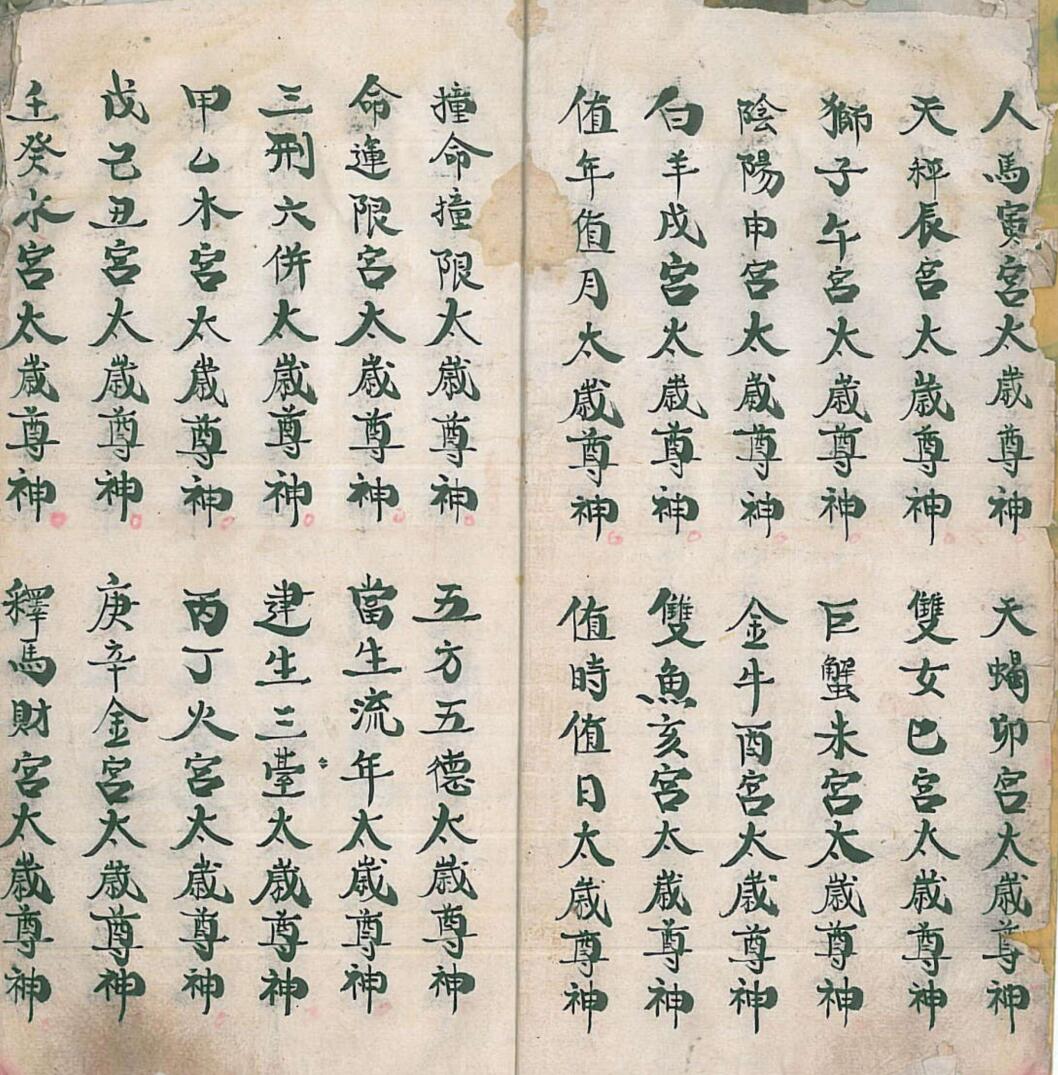 人馬寅宮太歳尊神 天蝎卯宮太歳尊神
天秤辰宮太歳尊神 雙女巳宮太歳尊神
獅子午宮太歳尊神 巨蟹未宮太歳尊神
陰陽申宮太歳尊神 金牛酉宮太歳尊神
白羊戌宮太歳尊神 雙魚亥宮太歳尊神
值年值月太歳尊神 值時值日太歳尊神
撞命撞限太歳尊神 五方五德太歳尊神
命運限宮太歳尊神 當生流年太歳尊神
三刑六併太歳尊神 建生三臺太歳尊神
甲乙木宮太歳尊神 丙丁火宮太歳尊神
戊己丑宮太歳尊神 庚辛金宮太歳尊神
壬癸水宮太歳尊神 釋馬財宮太歳尊神